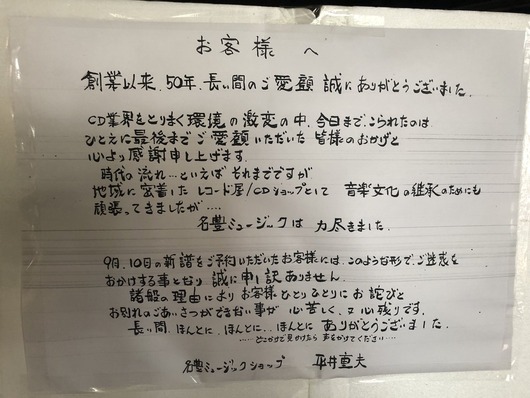 お客様へ
創業以来、50年、長い間のご愛顧 誠にありがとうございました。
CD業界をとりまく環境の激変の中、今日まで、こられたのは
ひとえに最後までご愛顧いただいた 皆様のおかげと
心より感謝申し上げます。
時代の流れ…といえば それまでですが
地域に密着した レコード屋/CDショップとして 音楽文化の継承のためにも
頑張ってきましたが....
名豊ミュージックは 力尽きました。
9月、10日の新譜をご予約いただいたお客様には、このような形で、ご迷惑を
おかけする事となり 誠に申し訳ありません。
諸般の理由により お客様 ひとりひとりに お詫びと
お別れのごあいさつができない事が 心苦しく、又 心残りです。
長い間、ほんとに、ほんとに、ほんとに ありがとうございました。
....どこかで見かけたら 声をかけてください....
名豊ミュージックショップ 平井重夫